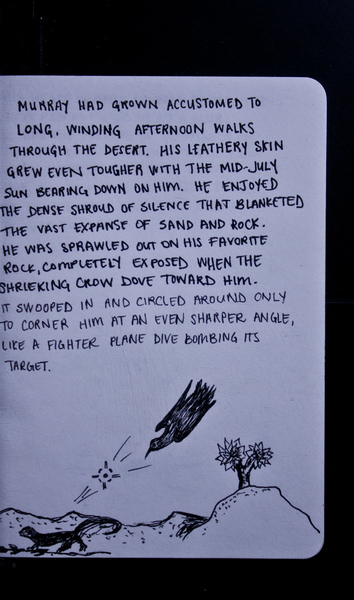 MURRAY HAD GROWN ACCUSTOMED TO
LONG, WINDING AFTERNOON WALKS
THROUGH THE DESERT. HIS LEATHERY SKIN
GREW EVEN TOUGHER WITH THE MID-JULY
SUN BEARING DOWN ON HIM. HE ENJOYED
THE DENSE SHROUD OF SILENCE THAT BLANKETED
THE VAST EXPANSE OF SAND AND ROCK.
HE WAS SPRAWLED OUT ON HIS FAVORITE
ROCK, COMPLETELY EXPOSED WHEN THE
SHRIEKING CROW DOVE TOWARD HIM.
IT SWOOPED IN AND CIRCLED AROUND ONLY
TO CORNER HIM AT AN EVEN SHARPER ANGLE,
LIKE A FIGHTER PLANE DIVE BOMBING ITS
TARGET.